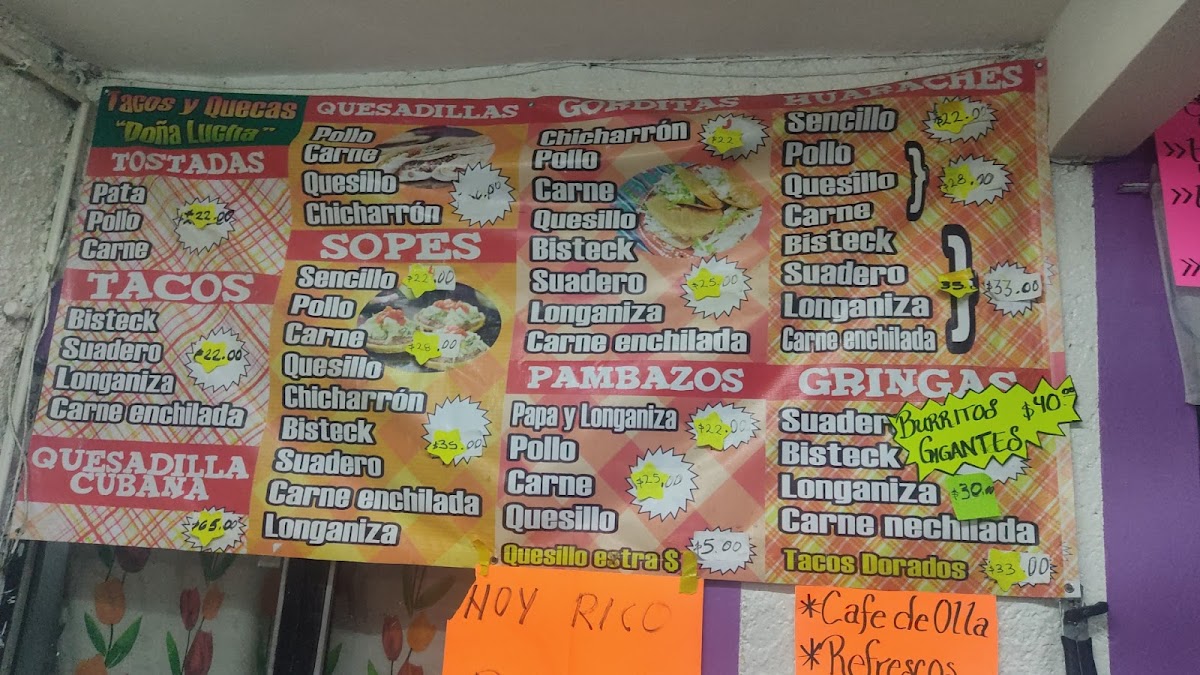 Tacos y Quecas
"Doña Lucha"
TOSTADAS
Pata
Pollo
Carne
$22.00
TACOS
Bisteck
Suadero
Longaniza
Carne enchilada
$22.00
QUESADILLA
CUBANA
$65.00
QUESADILLAS
Pollo
Carne
Quesillo
Chicharrón
SOPES
Sencillo $22.00
Pollo
Carne $28.00
Quesillo
Chicharrón
Bisteck
Suadero
Carne enchilada
Longaniza
$35.00
GORDITAS
Chicharrón
$22
Pollo
Carne
Quesillo
Bisteck
Suadero
Longaniza
Carne enchilada
$25.00
PAMBAZOS
Papa y Longaniza $22.00
Pollo
Carne
Quesillo
$25.00
Quesillo estra $
$5.00
HUARACHES
Sencillo $22.00
Pollo
Quesillo
Carne
$28.00
Bisteck
Suadero
Longaniza
Carne enchilada
35.
$33.00
GRINGAS
Suader
Bisteck
Longaniza
Carne nechilada
$30.
BURRITOS $40.00
GIGANTES
Tacos Dorados $33.00
HOY RICO
*Cafe de Olla
*Refrescos